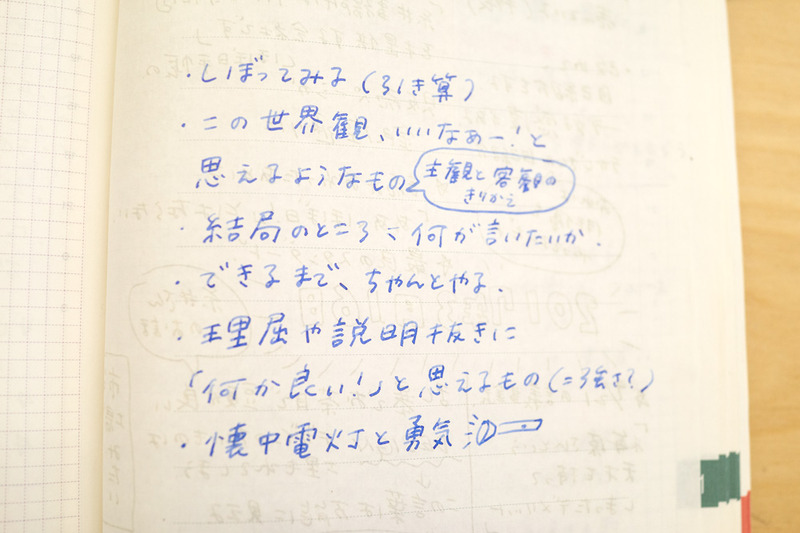 ・しぼってみる(引き算)
・この世界観、いいなぁー!と
思えるようなもの
主観と客観の
きりかえ
・結局のところ、何が言いたいか.
・できるまで、ちゃんとやる.
・理屈や説明抜きに
「何か良い!」と思えるもの(=強さ?)
・懐中電灯と勇気